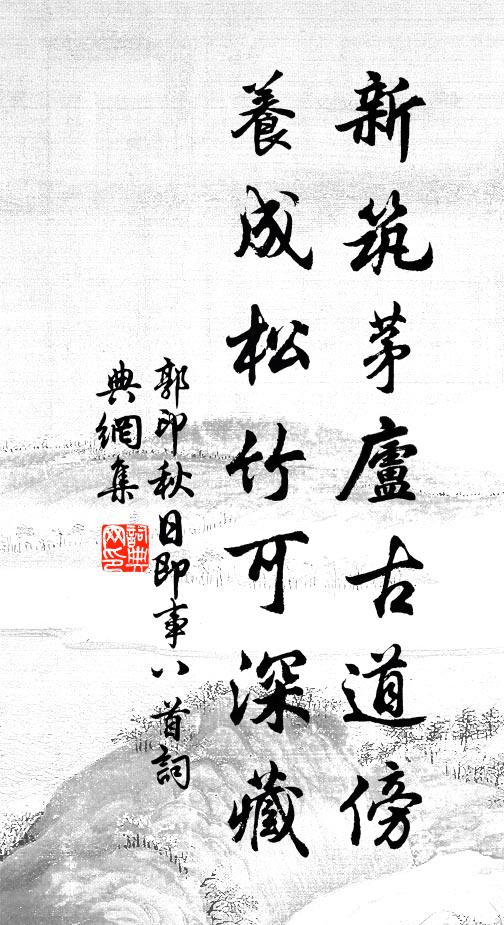 新筑茅廬古道傍
養成松竹可深藏
郭印秋日即事八首詞
典網集
詞典網印